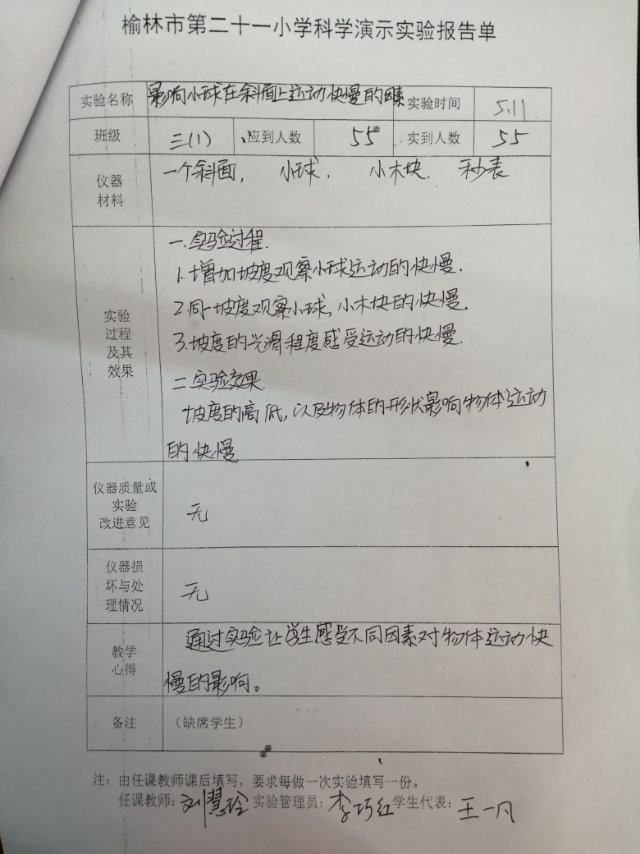 榆林市第二十一小学科学演示实验报告单
实验名称 影响小球在斜面上运动快慢的因素 实验时间 5.11
班级 三(1) 应到人数 55 实到人数 55
仪器材料 一个斜面, 小球. 小木块. 秒表
实验过程及其效果
一.实验过程.
1.增加坡度观察小球运动的快慢.
2.同一坡度观察小球,小木块的快慢.
3.坡度的光滑程度感受运动的快慢.
二.实验效果.
坡度的高低,以及物体的形状影响物体运动
的快慢
仪器质量或实验改进意见 无
仪器损坏与处理情况 无
教学心得 通过实验让学生感受不同因素对物体运动快
慢的影响。
备注 (缺席学生)
注:由任课教师课后填写,要求每做一次实验填写一份。
任课教师:刘慧玲 实验管理员:李巧红 学生代表:王一凡